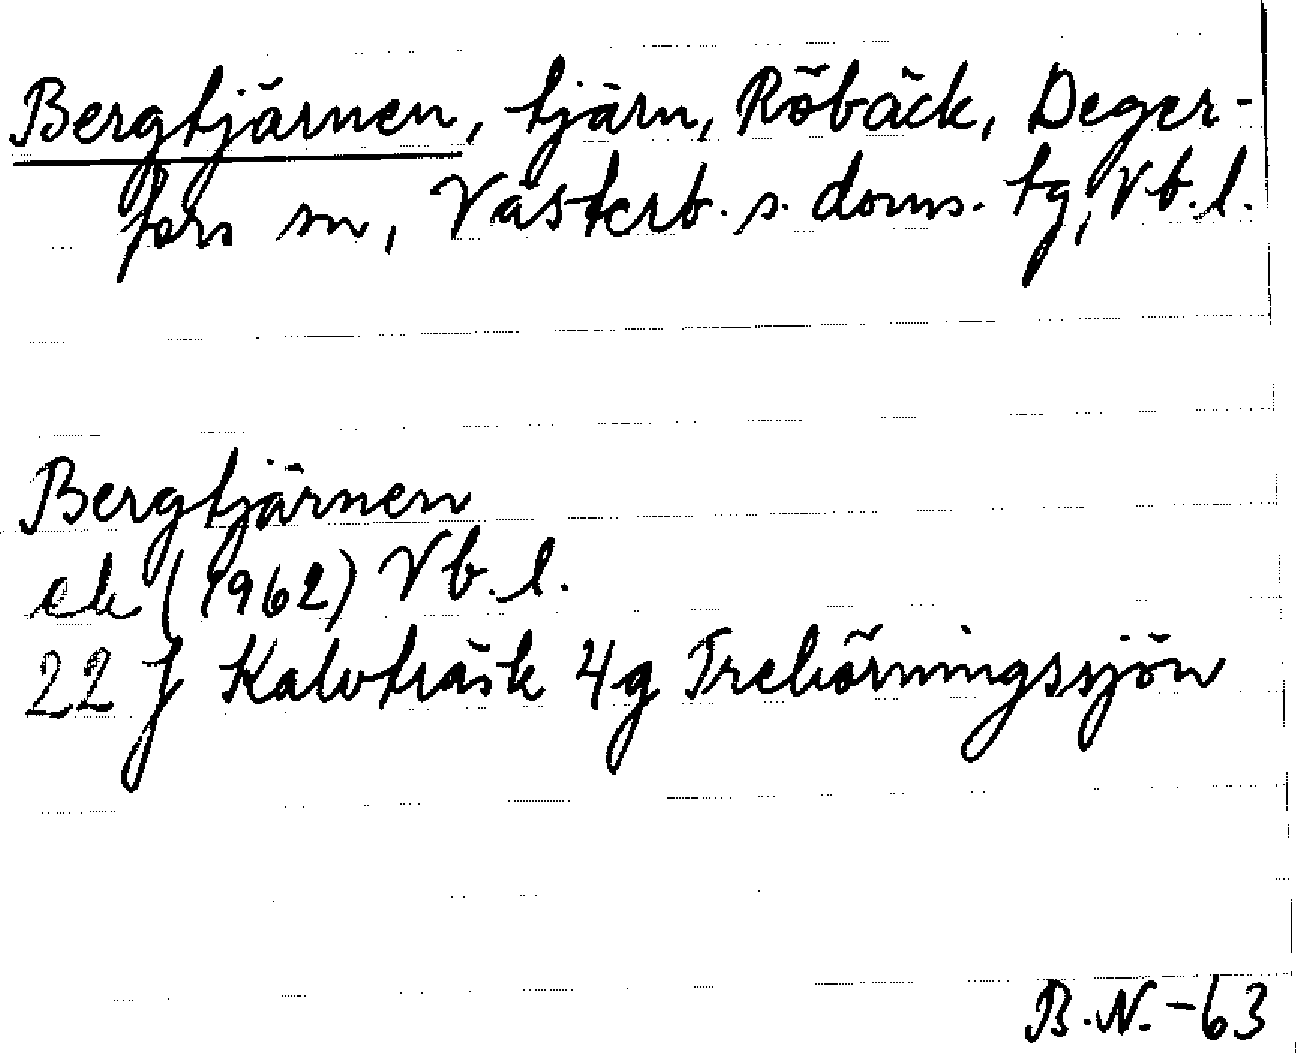 Bergtjärnen, tjärn, Röbäck, Deger-
fors sn, Västerb. s. doms. tg, Vb. l.
Bergtjärnen
ek (1962) Vb. l.
22 J Kalvträsk 4g Trehörningssjön
B.N.-63